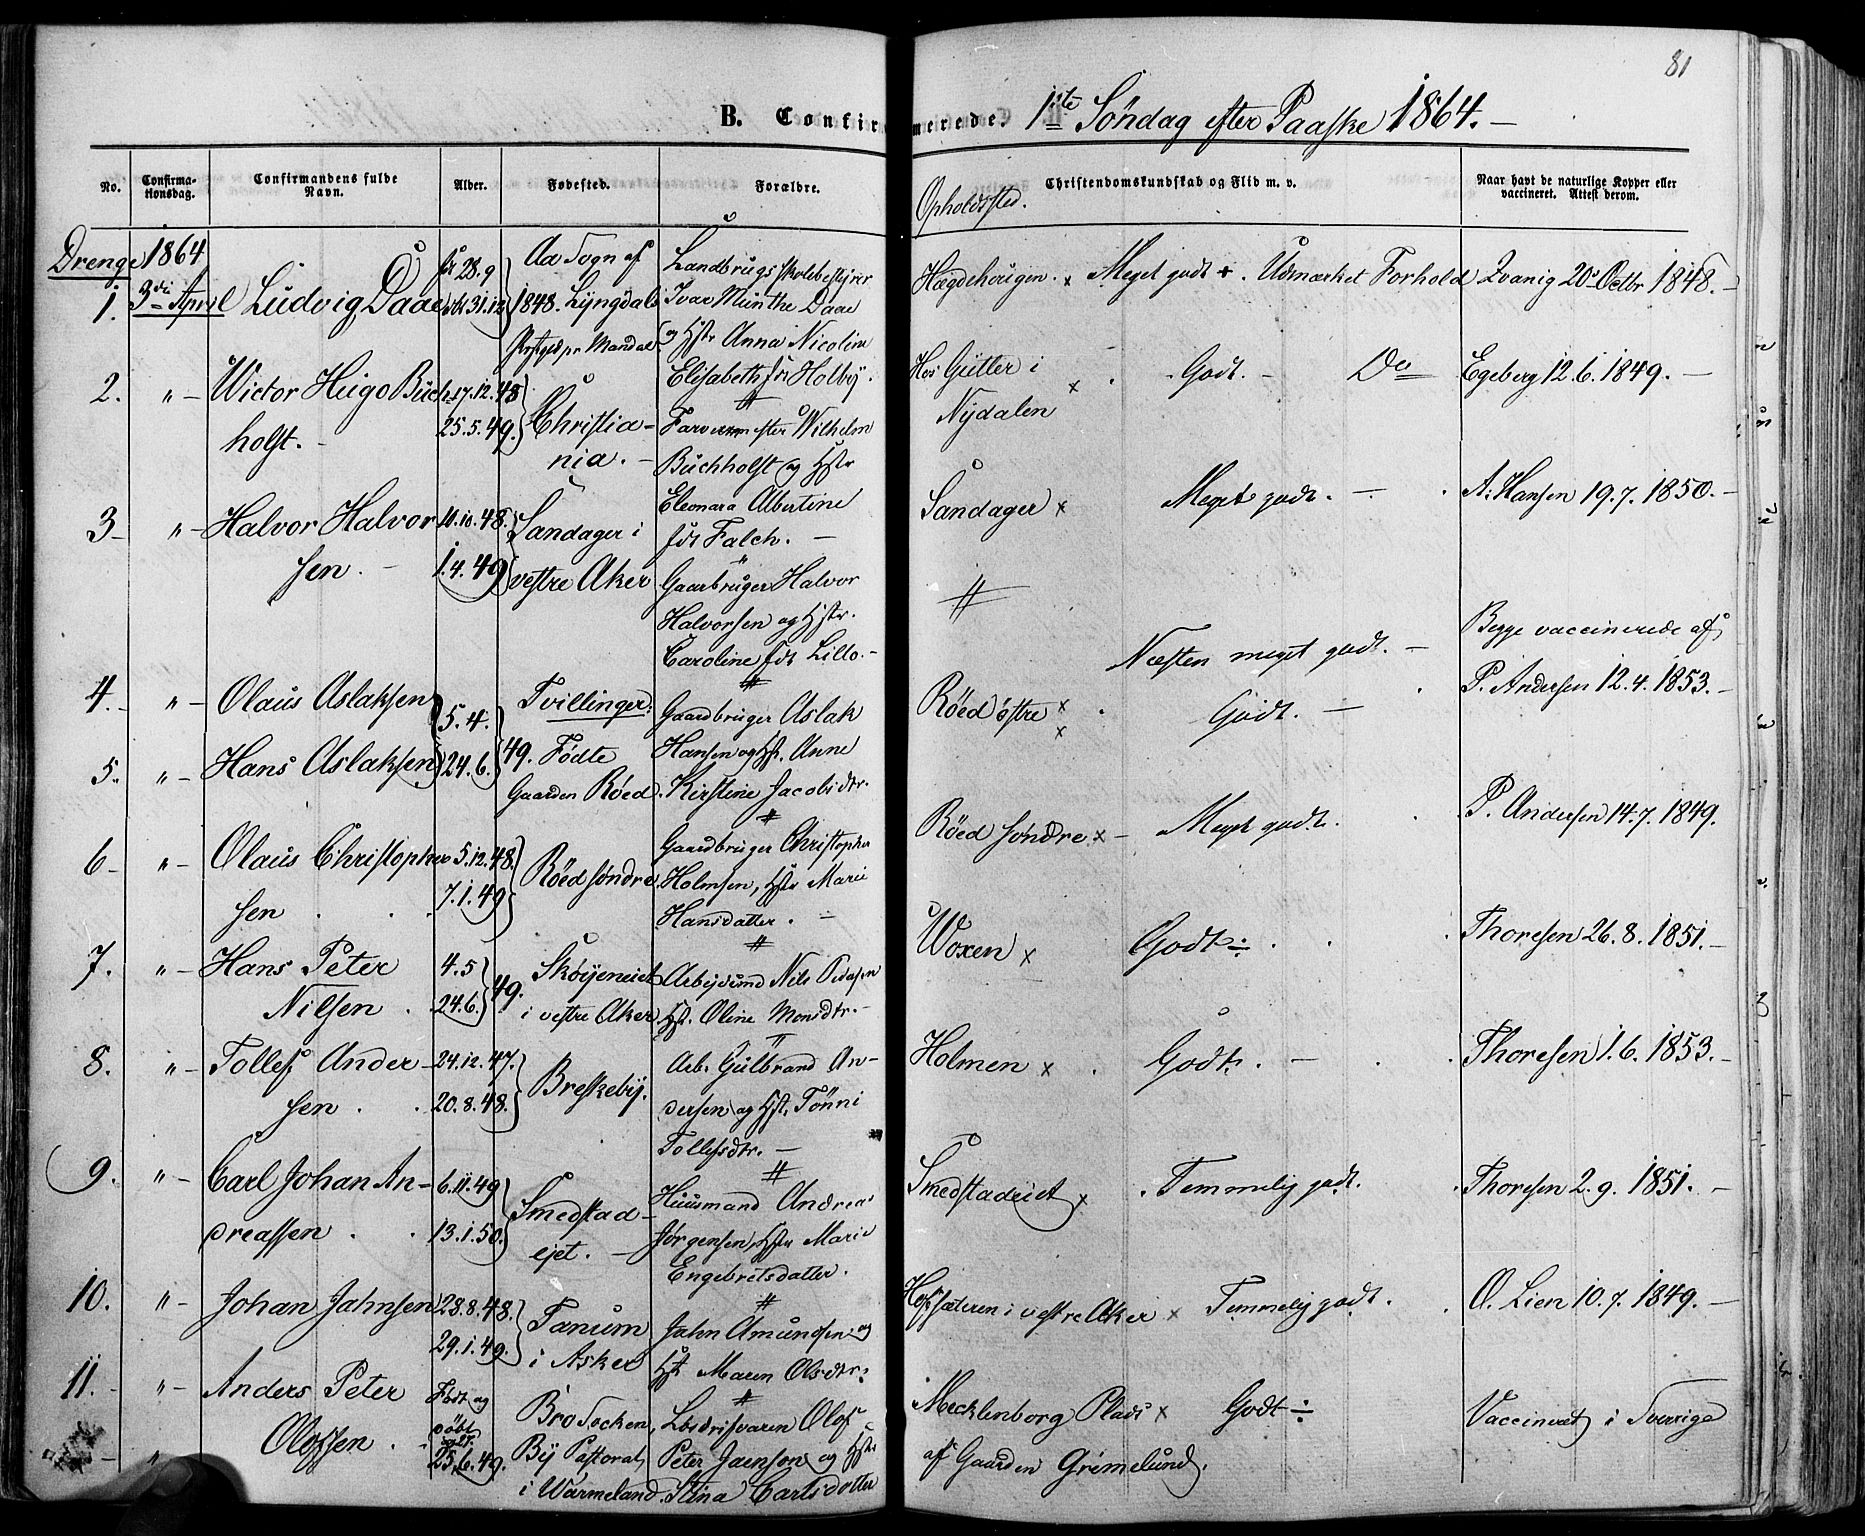 81
B. Confirmerede. 1ste Søndag efter Paaske 1864. –
No.
Confirma-
tionsdag.
Confirmandens fulde
Navn.
Alder.
Fødested.
Forældre.
Opholdssted.
Christendomskundskab og Flid m. v.
Naar havt de naturlige Kopper eller
vaccineret. Attest derom.
Drenge 1864
1. 3die April Ludvig Daae
28.9
31.12 1848.
Aa Sogn af
Lyngdals
Præstegjed pr Mandal
Landbrugsskolebestyrer
Ivar Munthe Daae
og Hstr Anna Nicoline
Elisabeth fdt Holby.
Hægdehougen. x Meget godt + . Udmærket Forhold
Qvanig 20 Octbr 1848. –
2. " – Wictor Hugo Buch
holst. –
17.12.48
25.5.49.
Christia-
nia. –
Farvermester Wilhelm
Buchholst og Hstr
Eleonara Albertine
fdt Falch. –
Hos Gutter i
Nydalen x
Godt. – Do
Egeberg 12.6.1849. –
3 – " – Halvor Halvor
sen. –
10.10.48.
1.4.49
Sandager i
vestre Aker
Gaarbruger Halvor
Halvorsen og Hstr.
Caroline fdt Lillo. –
Sandager x
Meget godt. –
A. Hansen 19.7.1850. –
4. – " – Olaus Aslaksen
5. " – Hans Aslaksen
5.4.
24.6. 49.
Tvillinger.
Fødte
Gaarden Røed.
Gaardbruger Aslak
Hansen og Hst. Anne
Kirstine Jacobsdtr.
Røed østre x
x
Næsten meget godt. –
Godt. –
Begge vaccinerede af
P. Andersen 12.4.1853. –
6 – " – Olaus Christopher
sen
5.12.48.
7.1.49
Røed søndre
Gaardbruger Christopher
Holmsen, Hstr Marie
Hansdatter. –
Røed søndre x – Meget godt.
P. Andersen 14.7.1849.
7. " – Hans Peter
Nilsen.
4.5
24.6. 49.
Skøyeneiet
i vestre Aker.
Arbeidsmd Nils Pedersen
Hst. Oline Monsdtr. –
Woxen x
Godt ÷
Thoresen 26.8.1851. –
8. " – Tollef Ander –
sen.
24.12.47.
20.8.48.
Breskeby.
Arb. Gulbrand An –
dersen og Hst. Tønni
Tollefsdtr. –
Holmen x
Godt. –
Thoresen 1.6.1853. –
9. " – Carl Johan An –
dreassen.
6.11.49
13.1.50.
Smedstad –
ejet. –
Huusmand Andreas
Jørgensen, Hstr Marie
Engebretsdatter.
Smedstadeiet x
Temmelig godt.
Thoresen 2.9.1851. –
10. " – Johan Jahnsen
28.8.48.
29.1.49.
Tanum
i Asker
Jahn Amundsen og
Hst Maren Olsdtr.
Hofsæteren i vestre Aker x Temmelig godt.
O. Lien 10.7.1849. –
11. – " – Anders Peter
Olofsen.
Født og
døbt
25.6.49.
Bro Socken,
By Pastorat,
i Wärmeland.
Olof
Peter Jaenson og Hstr
Stina Carlsdotter
Mecklenborg Plads x
af Gaarden Grimelund.
Godt ÷
Vaccineret i Sverrige